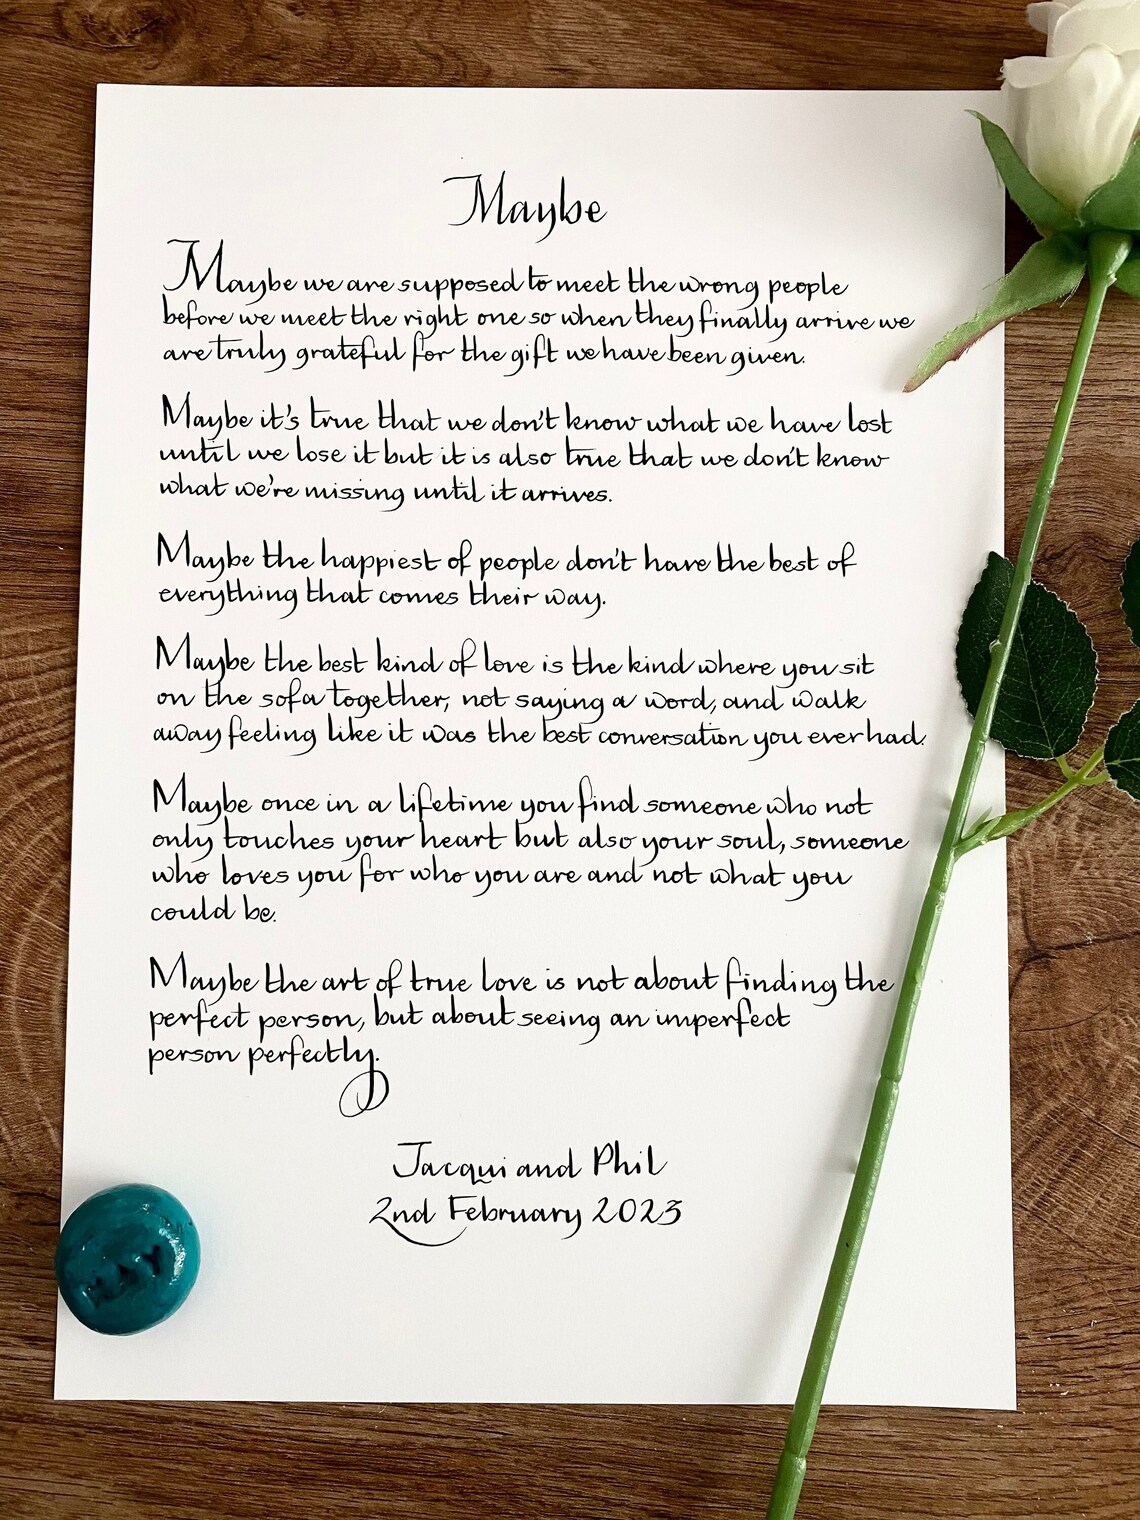 Maybe
Maybe we are supposed to meet the wrong people
before we meet the right one so when they finally arrive we
are truly grateful for the gift we have been given.
Maybe it's true that we don't know what we have lost
until we lose it but it is also true that we don't know
what we're missing until it arrives.
Maybe the happiest of people don't have the best of
everything that comes their way.
Maybe the best kind of love is the kind where you sit
on the sofa together, not saying a word, and walk
away feeling like it was the best conversation you ever had.
Maybe once in a lifetime you find someone who not
only touches your heart but also your soul, someone
who loves you for who you are and not what you
could be.
Maybe the art of true love is not about finding the
perfect person, but about seeing an imperfect
person perfectly.
Jacqui and Phil
2nd February 2023